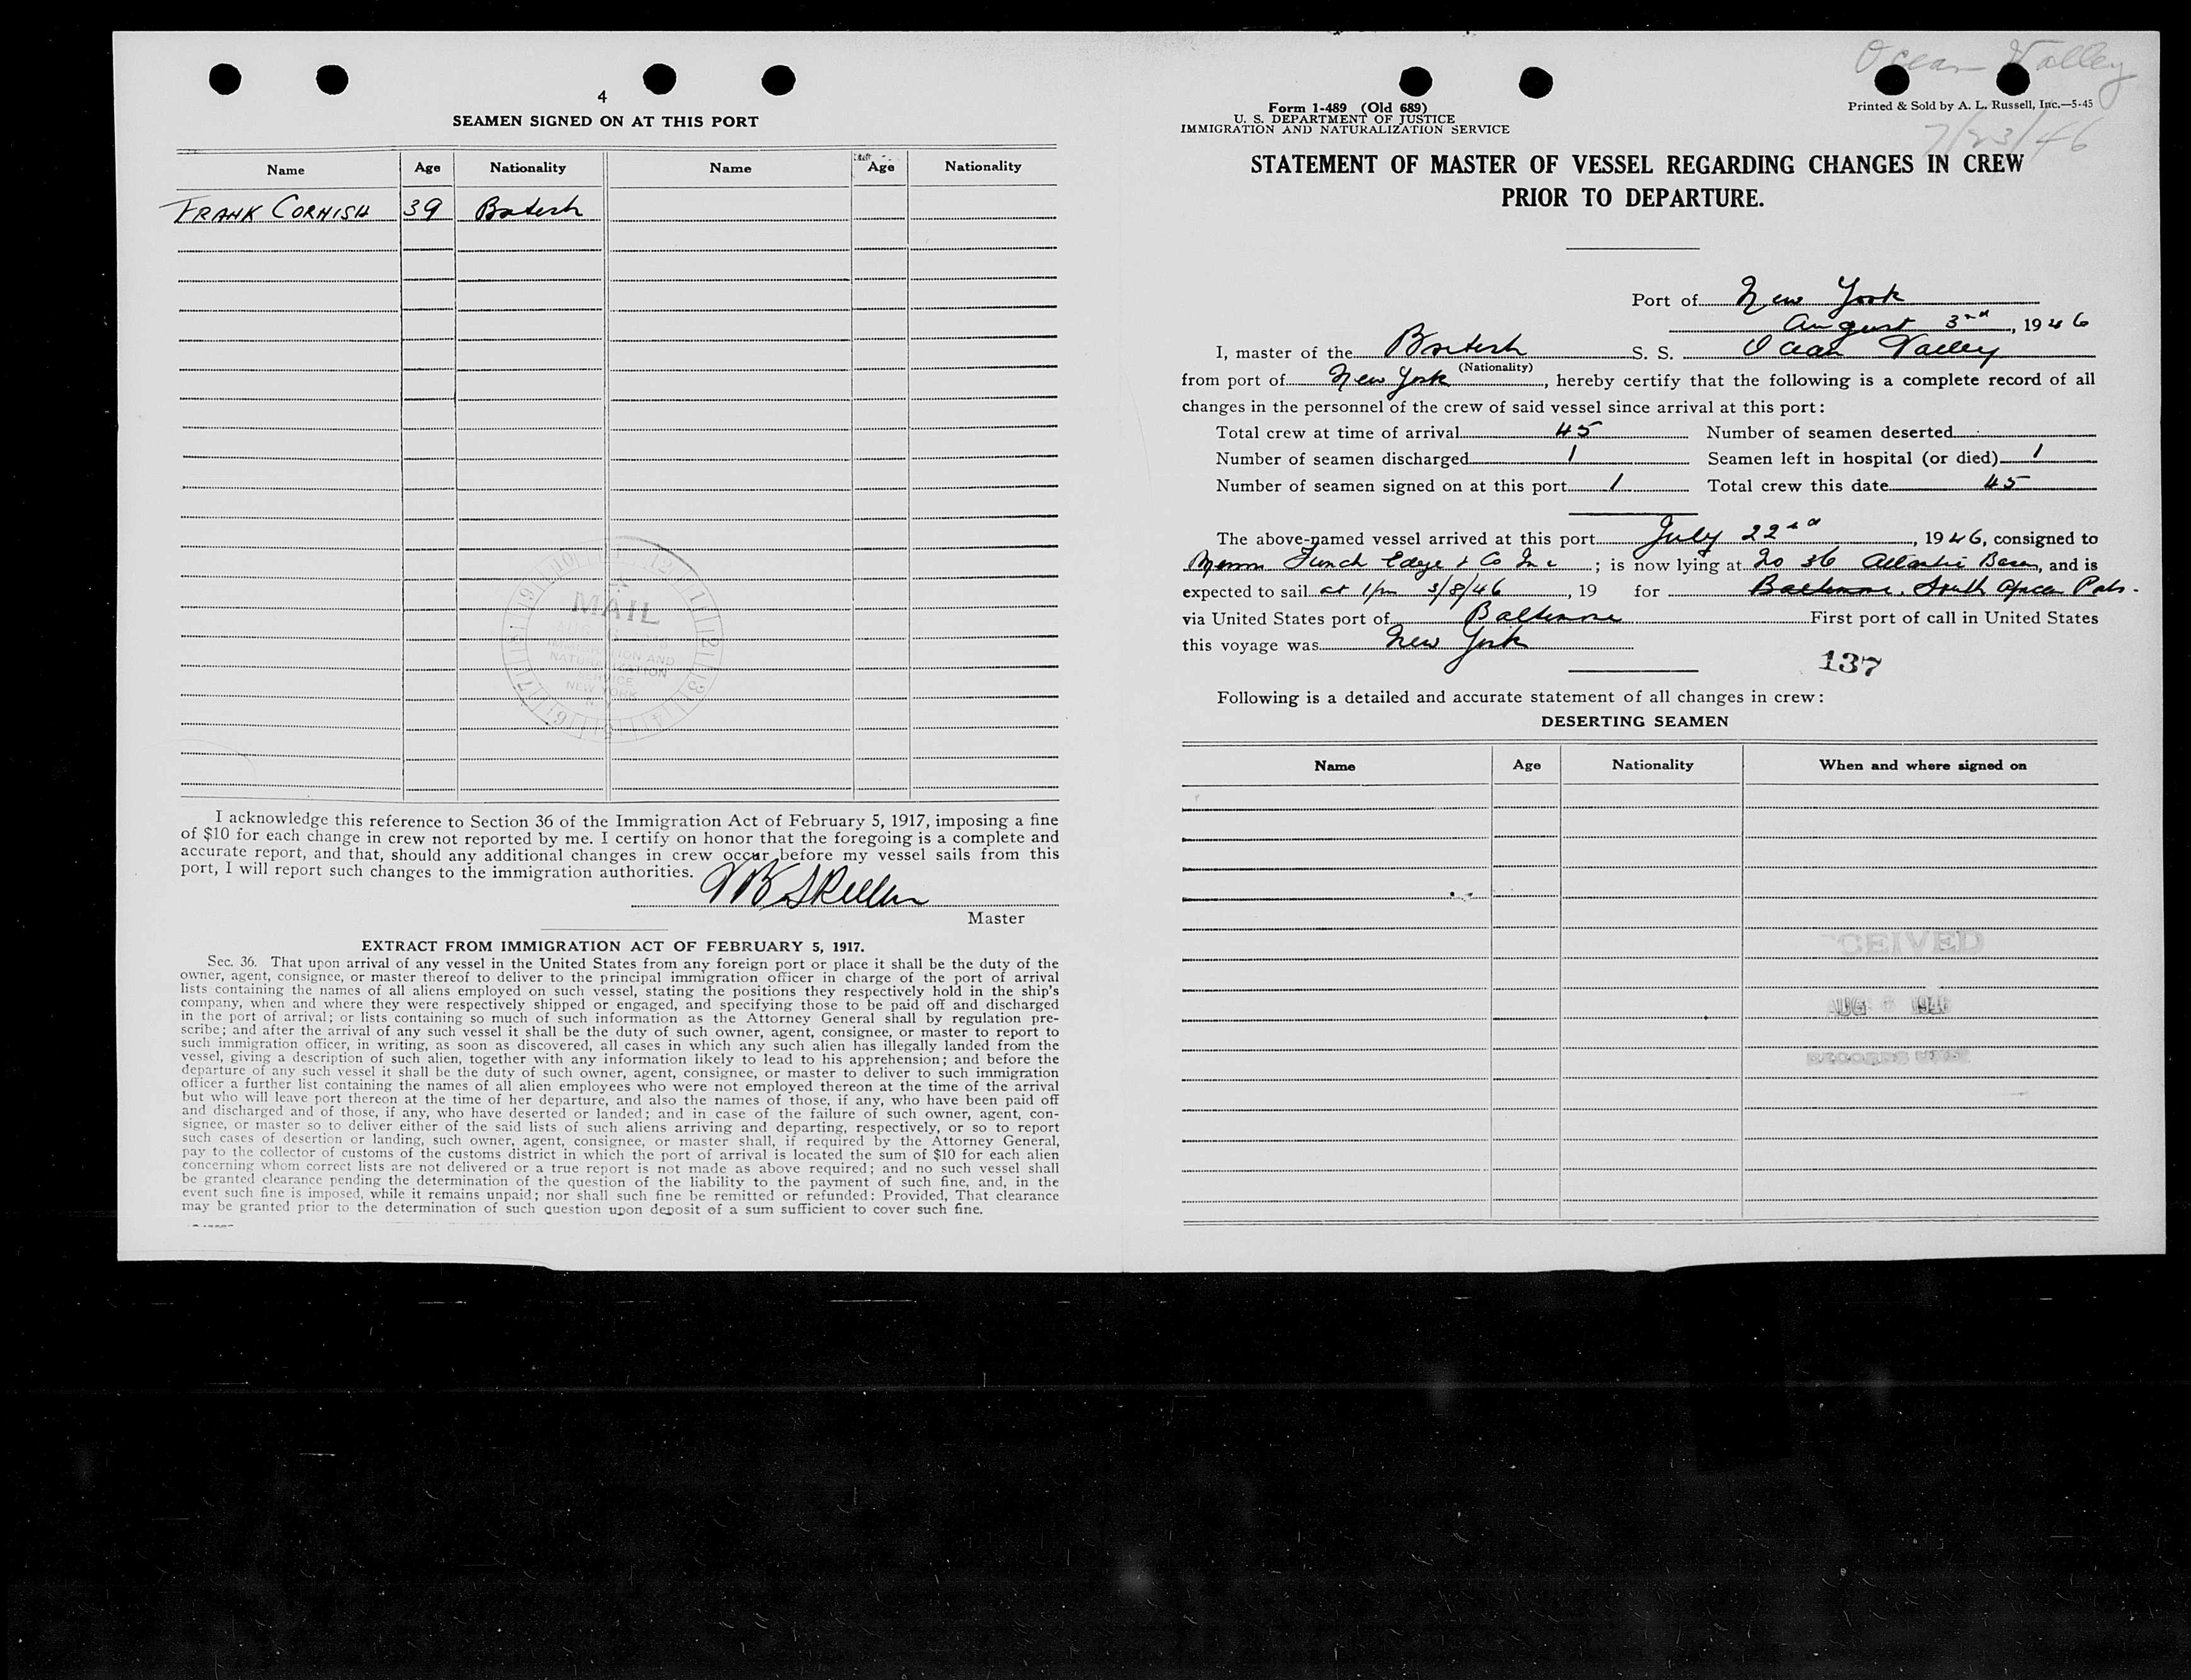 4
SEAMEN SIGNED ON AT THIS PORT
Name Age Nationality Name Age Nationality
FRANK CORNISH 39 British
MAIL
AUG
IMMIGRATION AND
NATURALIZATION
SERVICE
NEW YORK
I acknowledge this reference to Section 36 of the Immigration Act of February 5, 1917, imposing a fine
of $10 for each change in crew not reported by me. I certify on honor that the foregoing is a complete and
accurate report, and that, should any additional changes in crew occur before my vessel sails from this
port, I will report such changes to the immigration authorities.
Master
EXTRACT FROM IMMIGRATION ACT OF FEBRUARY 5, 1917.
Sec. 36. That upon arrival of any vessel in the United States from any foreign port or place it shall be the duty of the
owner, agent, consignee, or master thereof to deliver to the principal immigration officer in charge of the port of arrival
lists containing the names of all aliens employed on such vessel, stating the positions they respectively hold in the ship's
company, when and where they were respectively shipped or engaged, and specifying those to be paid off and discharged
in the port of arrival; or lists containing so much of such information as the Attorney General shall by regulation pre-
scribe; and after the arrival of any such vessel it shall be the duty of such owner, agent, consignee, or master to report to
such immigration officer, in writing, as soon as discovered, all cases in which any such alien has illegally landed from the
vessel, giving a description of such alien, together with any information likely to lead to his apprehension; and before the
departure of any such vessel it shall be the duty of such owner, agent, consignee, or master to deliver to such immigration
officer a further list containing the names of all alien employees who were not employed thereon at the time of the arrival
but who will leave port thereon at the time of her departure, and also the names of those, if any, who have been paid off
and discharged and of those, if any, who have deserted or landed; and in case of the failure of such owner, agent, con-
signee, or master so to deliver either of the said lists of such aliens arriving and departing, respectively, or so to report
such cases of desertion or landing, such owner, agent, consignee, or master shall, if required by the Attorney General,
pay to the collector of customs of the customs district in which the port of arrival is located the sum of $10 for each alien
concerning whom correct lists are not delivered or a true report is not made as above required; and no such vessel shall
be granted clearance pending the determination of the question of the liability to the payment of such fine, and, in the
event such fine is imposed, while it remains unpaid; nor shall such fine be remitted or refunded: Provided, That clearance
may be granted prior to the determination of such question upon deposit of a sum sufficient to cover such fine.
Ocean Valley
7/23/46
Form 1-489 (Old 689)
U. S. DEPARTMENT OF JUSTICE
IMMIGRATION AND NATURALIZATION SERVICE
Printed & Sold by A. L. Russell, Inc.—5-45
STATEMENT OF MASTER OF VESSEL REGARDING CHANGES IN CREW
PRIOR TO DEPARTURE.
Port of New York
August 3rd, 1946
I, master of the British S. S. Ocean Valley
(Nationality)
from port of New York, hereby certify that the following is a complete record of all
changes in the personnel of the crew of said vessel since arrival at this port:
Total crew at time of arrival 45 Number of seamen deserted
Number of seamen discharged 1 Seamen left in hospital (or died) 1
Number of seamen signed on at this port 1 Total crew this date 45
The above-named vessel arrived at this port July 22nd, 1946, consigned to
Funch Edye & Co Inc; is now lying at No 36 Atlantic Basin, and is
expected to sail at 1pm 3/8/46, 19 for Baltimore, South African Ports.
via United States port of Baltimore First port of call in United States
this voyage was New York
137
Following is a detailed and accurate statement of all changes in crew:
DESERTING SEAMEN
Name Age Nationality When and where signed on
CEIVED
AUG 6 1946
RECORDS